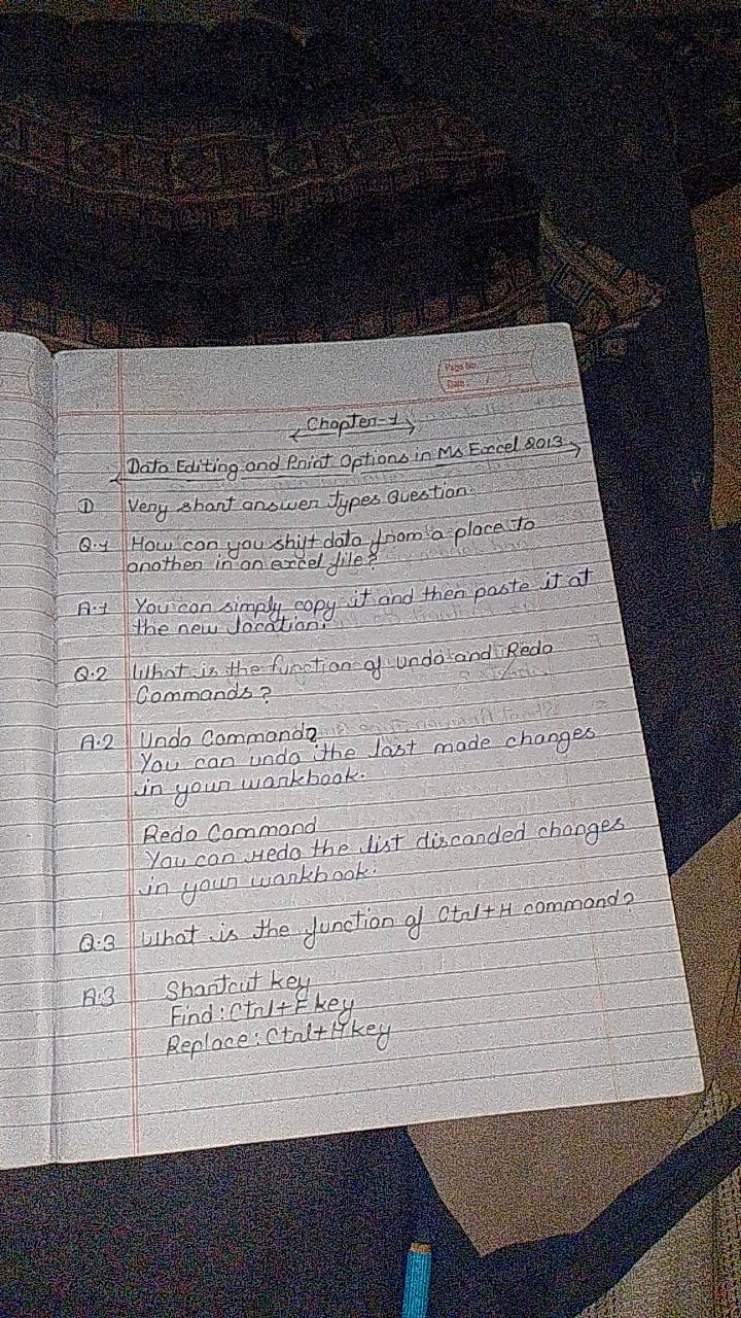 Page No.
Date
Chapter-1
Data Editing and Print Options in Ms Excel 2013
① Very short answer Types Question.
Q.1 How can you shift data from a place to
another in an excel file?
A.1 You can simply copy it and then paste it at
the new location.
Q.2 What is the function of undo and Redo
Commands?
A.2 Undo Command?
You can undo the last made changes
in your workbook.
Redo Command
You can redo the list discarded changes
in your workbook.
Q.3 What is the function of Ctrl+H command?
A.3 Shortcut key
Find : Ctrl+F key
Replace : Ctrl+H key